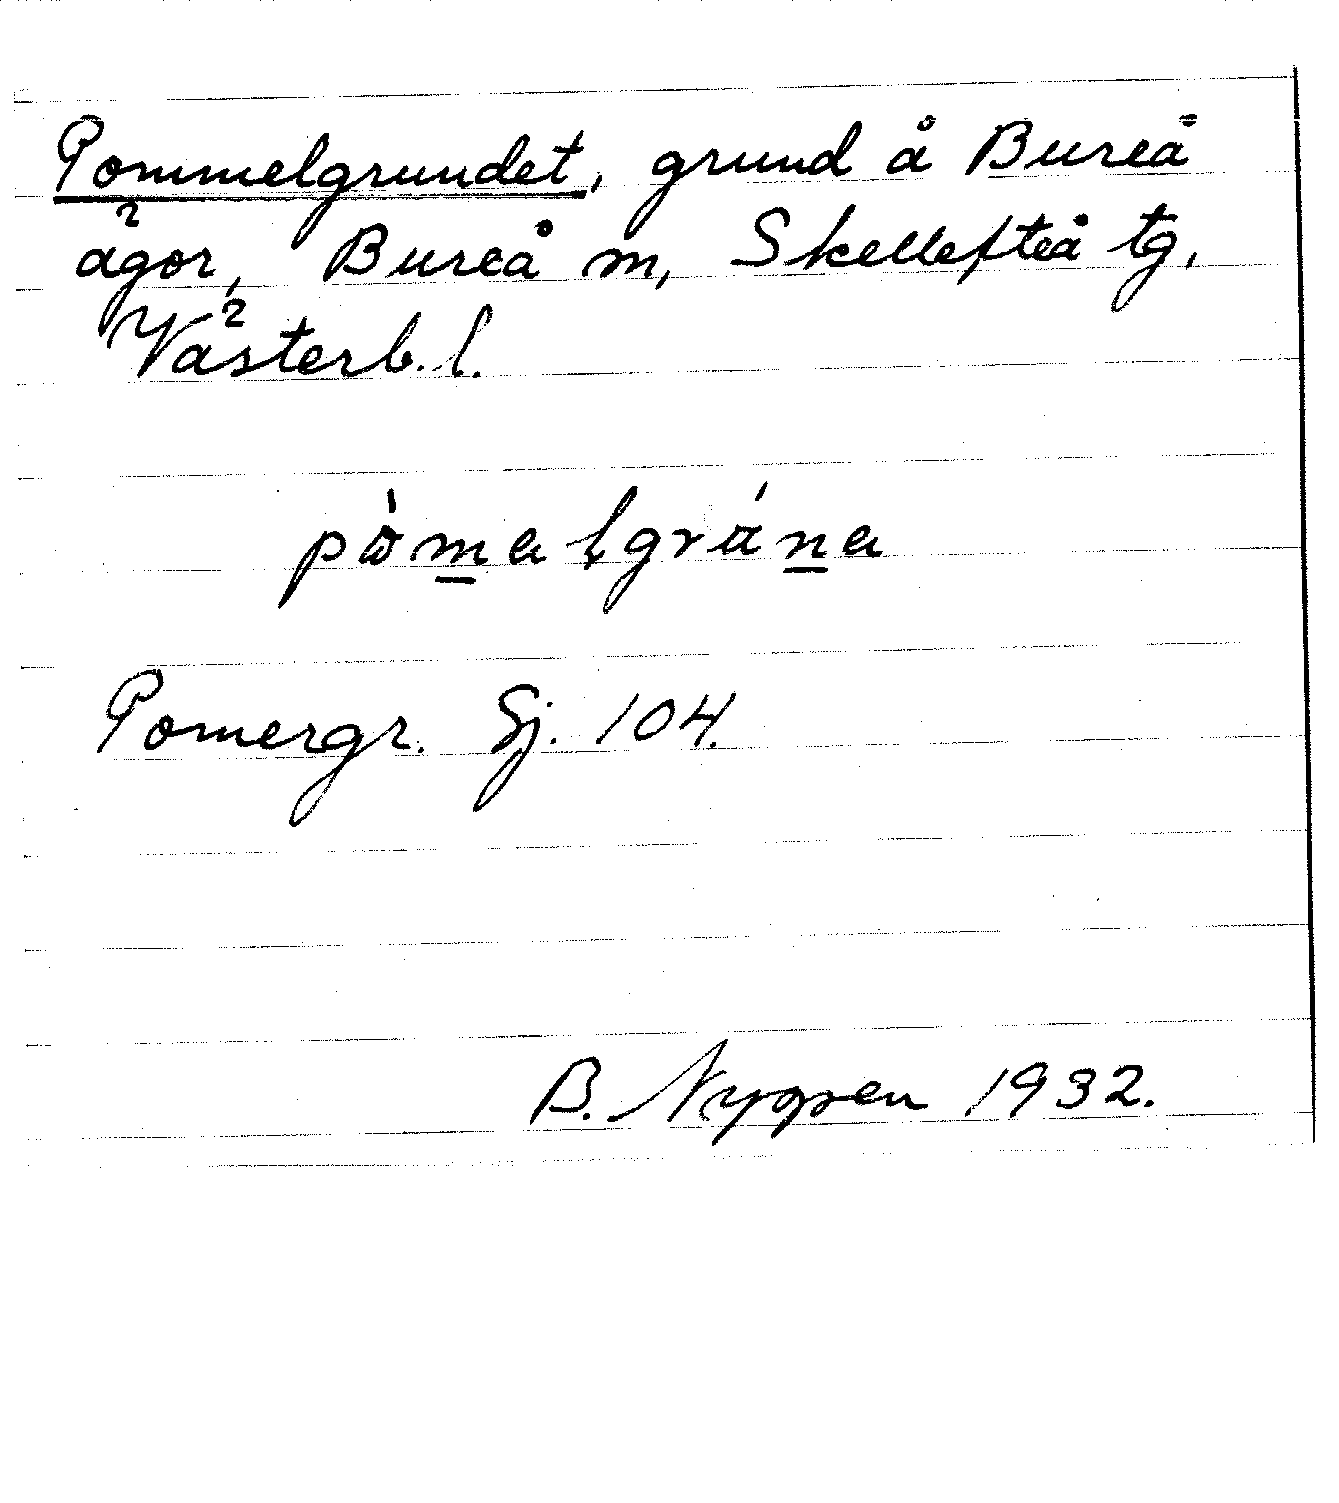 Pommelgrundet, grund å Bureå
ägor, Bureå m, Skellefteå tg,
Västerb. l.
Pomergr. Sj. 104.
B. Nygren 1932.